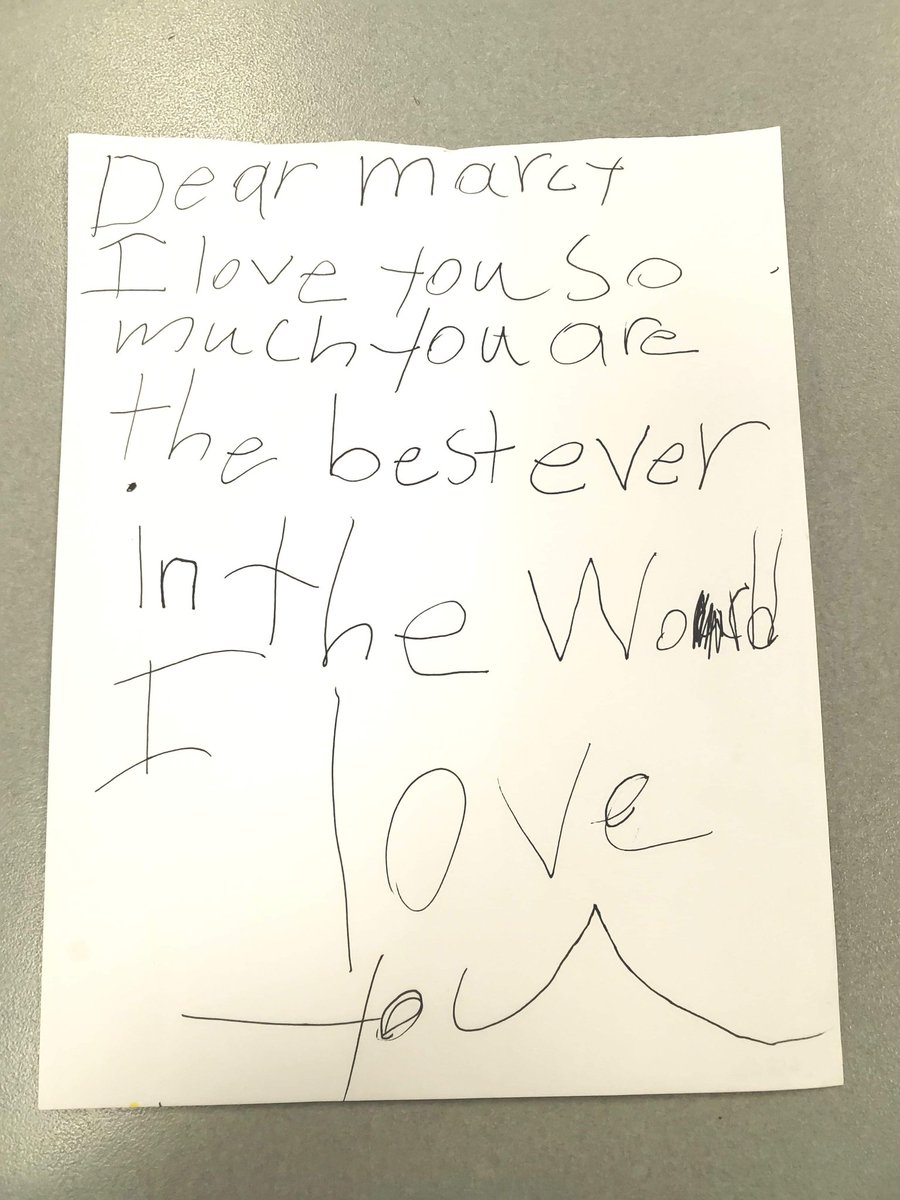 Dear marcy
I love you so
much you are
the best ever
In the Worrd
I love
you